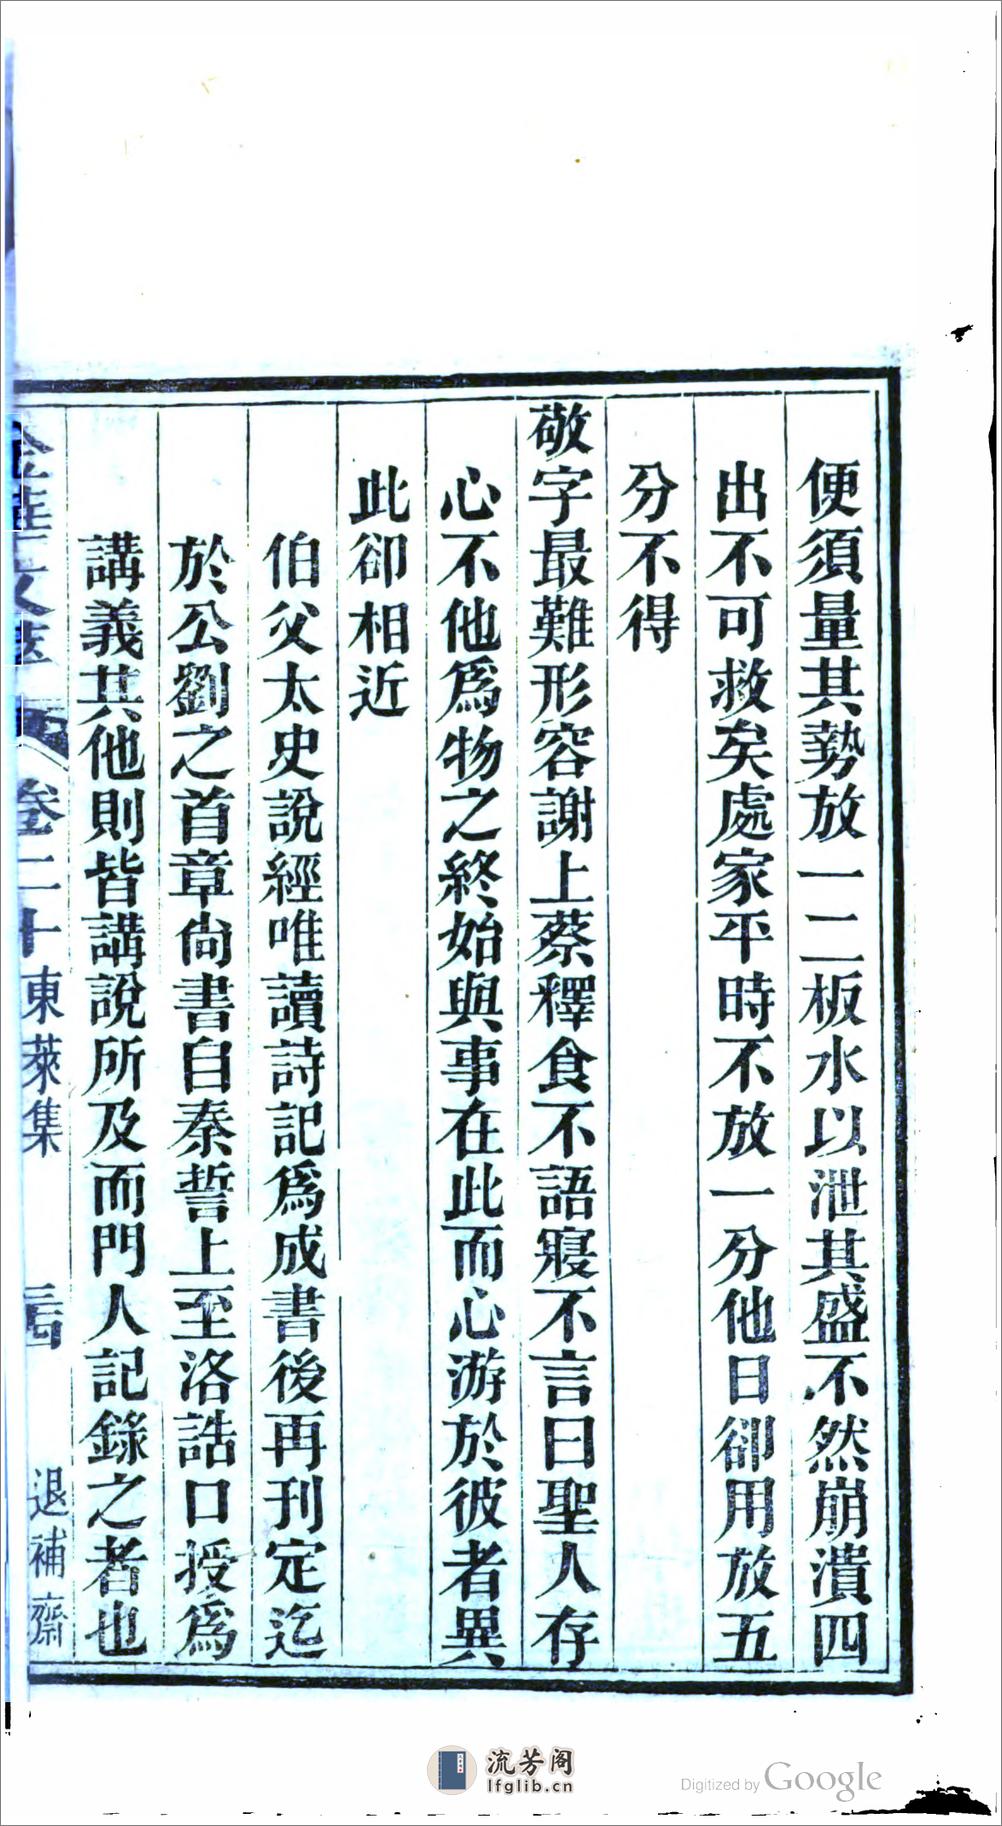 便須量其勢放一二板水以泄其盛不然崩潰四
出不可救矣處家平時不放一分他日卻用放五
分不得
敬字最難形容謝上蔡釋食不語寢不言曰聖人存
心不他為物之終始與事在此而心游於彼者異
此卻相近
伯父太史說經唯讀詩記為成書後再刊定迄
於公劉之首章尙書自秦誓上至洛誥口授為
講義其他則皆講說所及而門人記錄之者也
卷二十 東萊集
退補齋
流芳阁
lfglib.cn
Digitized by Google